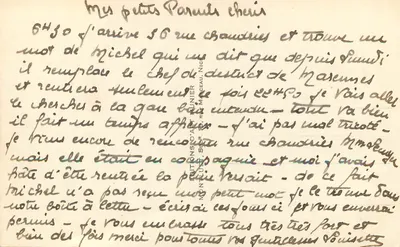 Mes petits Parents chéris
6h30 j'arrive 36 rue chaudries et trouve un
mot de Michel qui me dit que depuis lundi
il remplace le chef de district de Marennes
et rentrera seulement ce soir 22h50 je vais aller
le chercher à la gare bien entendu - tout va bien
il fait un temps affreux - j'ai pas mal tricoté -
je viens encore de rencontrer rue chaudries
mais elle était en compagnie et moi j'avais
hâte d'être rentrée la pluie versait - de ce fait
Michel n'a pas reçu mon petit mot je le trouve dans
notre boîte à lettre - écrirai ces jours ci et vous enverrai
permis - je vous embrasse tous très très fort et
bien des fois merci pour toutes vos gentillesses